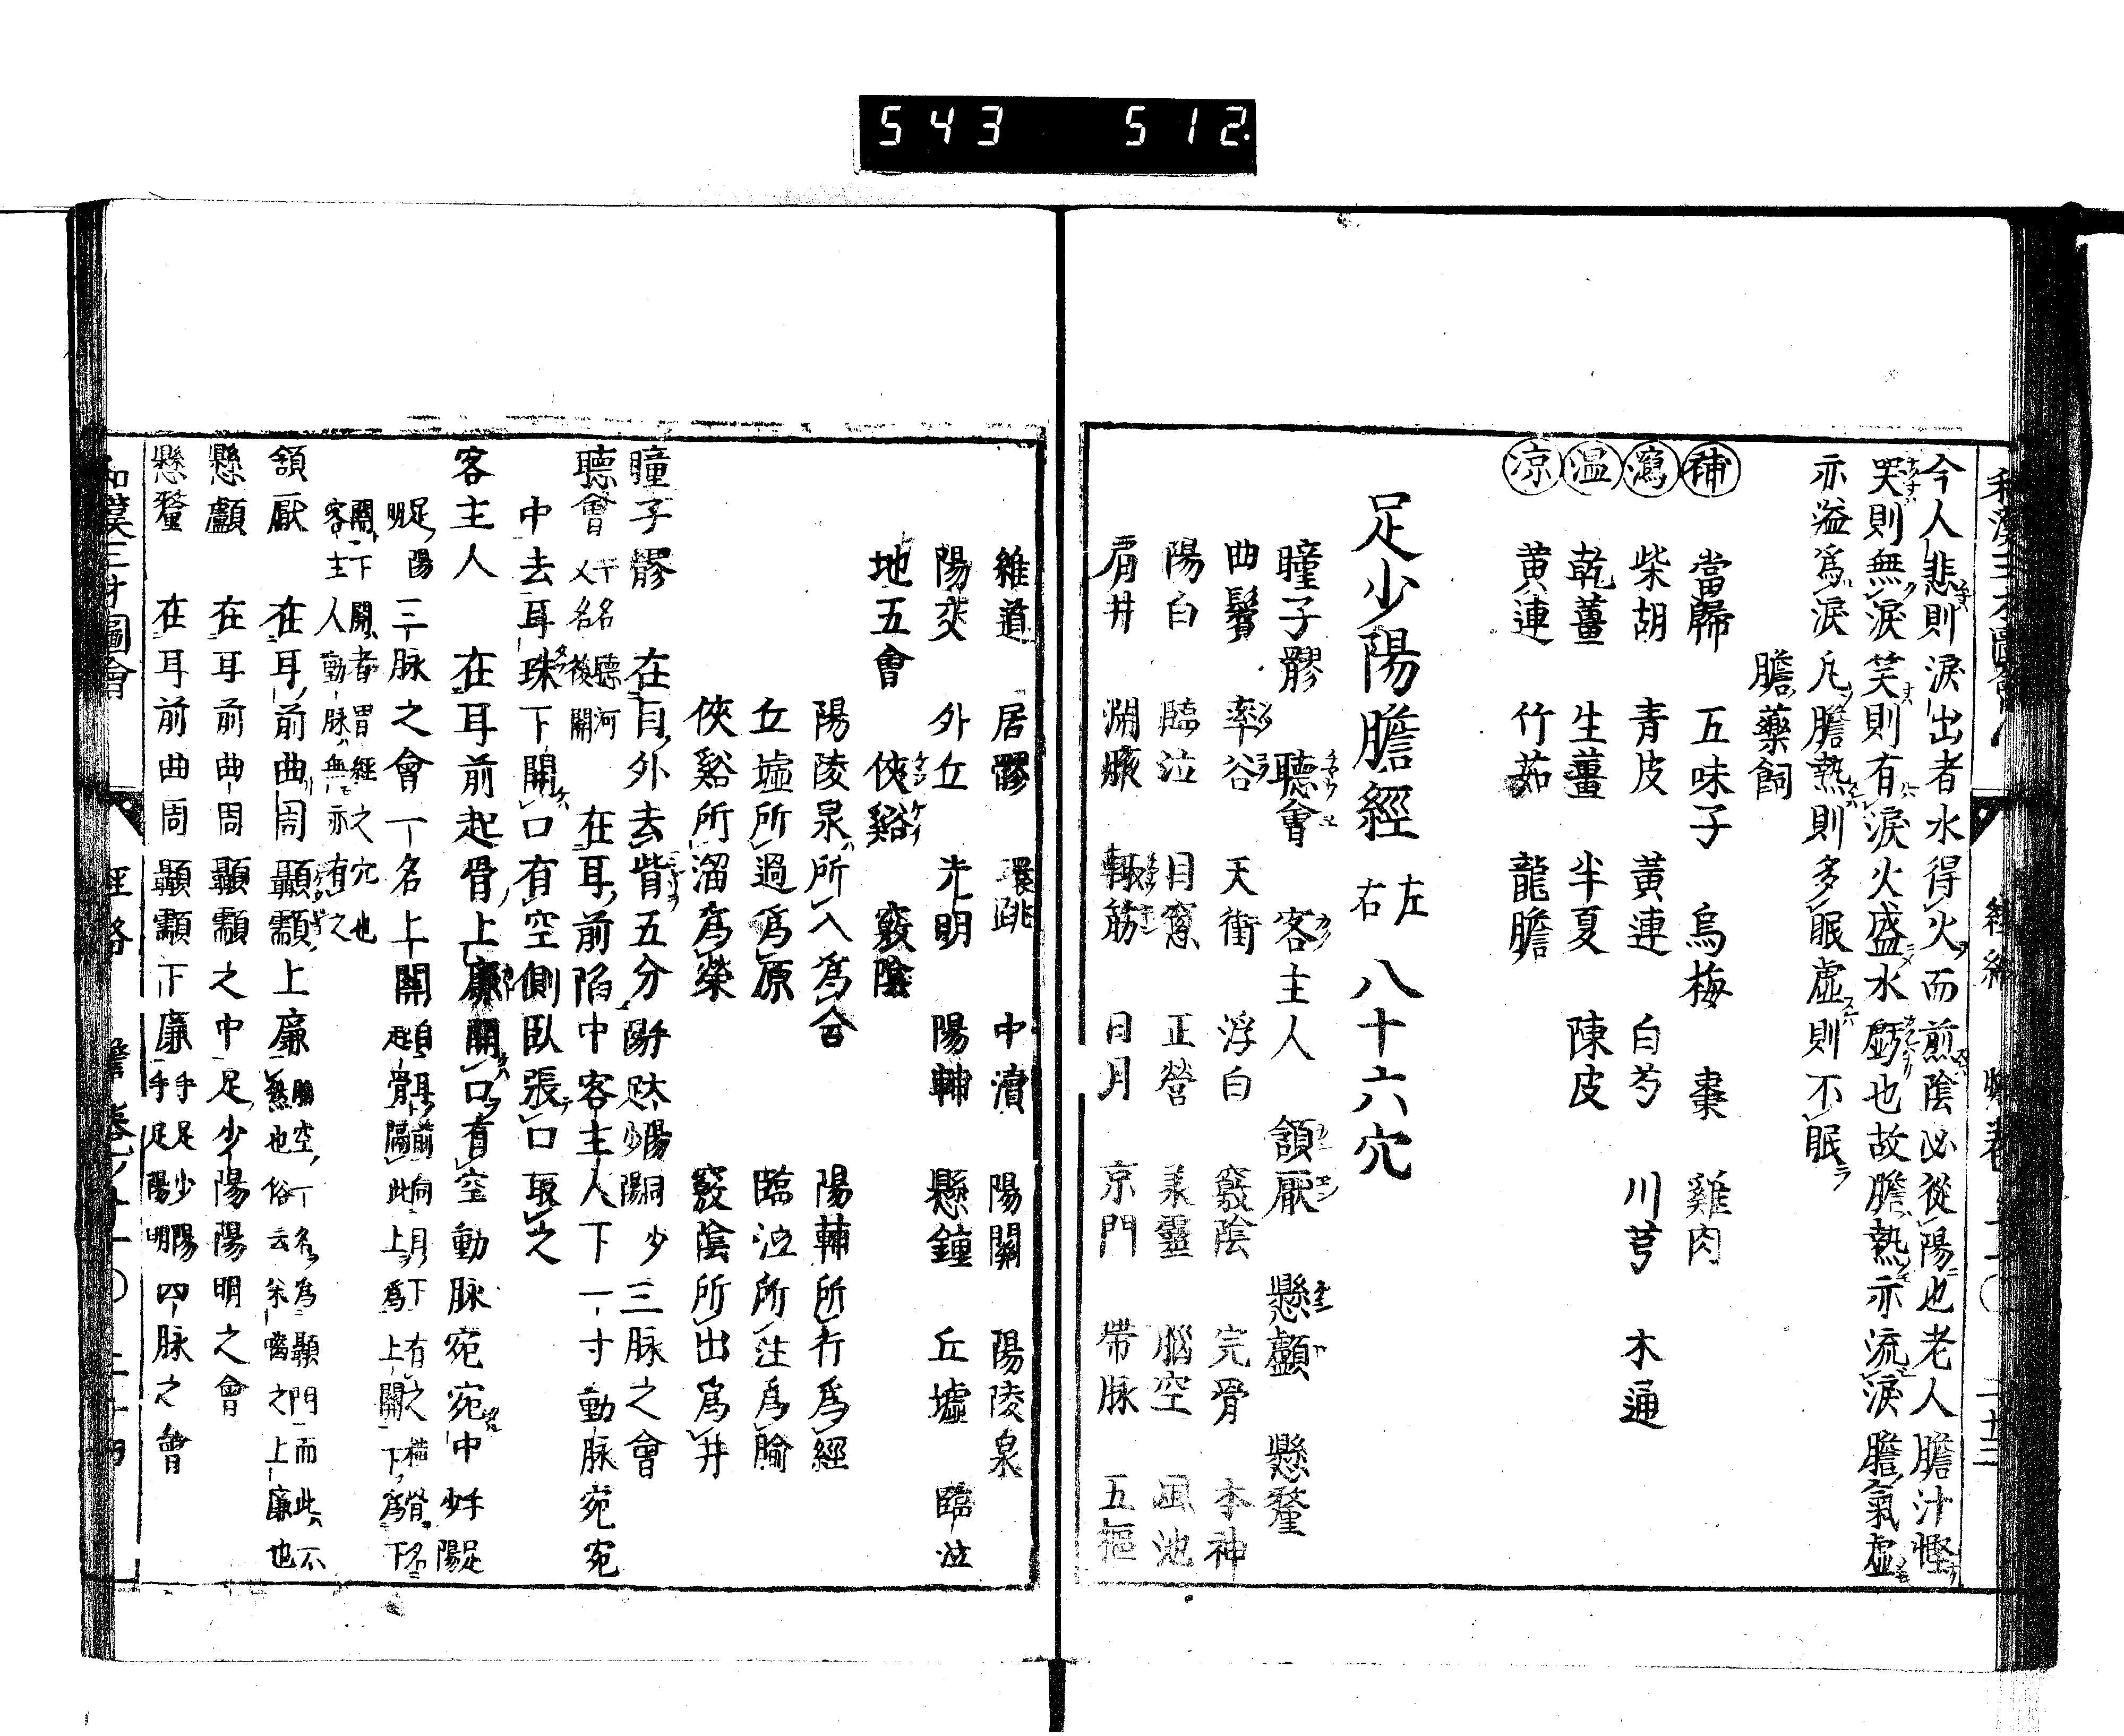 543 512
今人悲則淚出者水得火而煎陰必從陽也老人膽汁慳
哭則無淚笑則有淚火盛水虧也故膽熱亦流淚膽氣虛
亦溢爲淚凡膽熱則多眠虛則不眠
膽藥飼
補 當歸 五味子 烏梅 棗 雞肉
瀉 柴胡 青皮 黃連 白芍 川芎 木通
温 乾薑 生薑 半夏 陳皮
凉 黄連 竹茹 龍膽
足少陽膽經 左右 八十六穴
瞳子髎 聽會 客主人 頷厭 懸顱 懸釐
曲鬢 率谷 天衝 浮白 竅陰 完骨 本神
陽白 臨泣 目窓 正營 羕靈 腦空 風池
肩井 淵腋 輙筋 日月 京門 帶脉 五樞
維道 居髎 環跳 中瀆 陽關 陽陵泉
陽交 外丘 光明 陽輔 懸鐘 丘墟 臨泣
地五會 俠谿 竅陰
陽陵泉所入爲合 陽輔所行爲經
丘墟所過爲原 臨泣所注爲腧
俠谿所溜爲榮 竅陰所出爲井
瞳子髎 在目外去眥五分 手太陽手足少陽 三脉之會
聽會 一名聽河又名後關 在耳前陷中客主人下一寸動脉宛宛
中去耳珠下開口有空側臥張口取之
客主人 在耳前起骨上廉開口有空動脉宛宛中 手足少陽
足陽明 三脉之會一名上關 自耳前向目下有之橫骨名起骨隔此上爲上關下爲下
關下關者胃經之穴也客主人動脉無亦有之
頷厭 在耳前曲周顳顬上廉 腦空一名爲顳門而此不然也俗云米嚙之上廉也
懸顱 在耳前曲周顳顬之中足少陽陽明之會
懸釐 在耳前曲周顳顬下廉 手足少陽手足陽明 四脉之會
和漢三才圖會 經絡